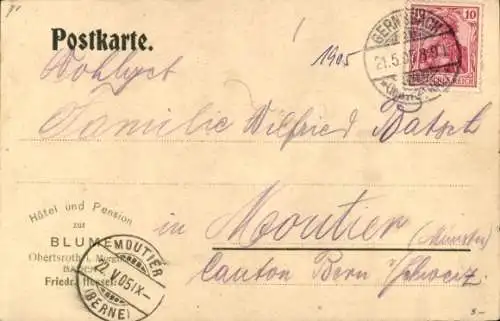 Postkarte.
1905
GERNSBACH
21.5.05
10
Wohllobl.
Familie Wilfried Batsch
in Moutier (Münster)
Canton Bern / Schweiz
Hôtel und Pension
zur
BLUME
Obertsroth i. Murgtal
BADEN
MOUTIER
22.V.05 IX-
(BERNE)
3.-